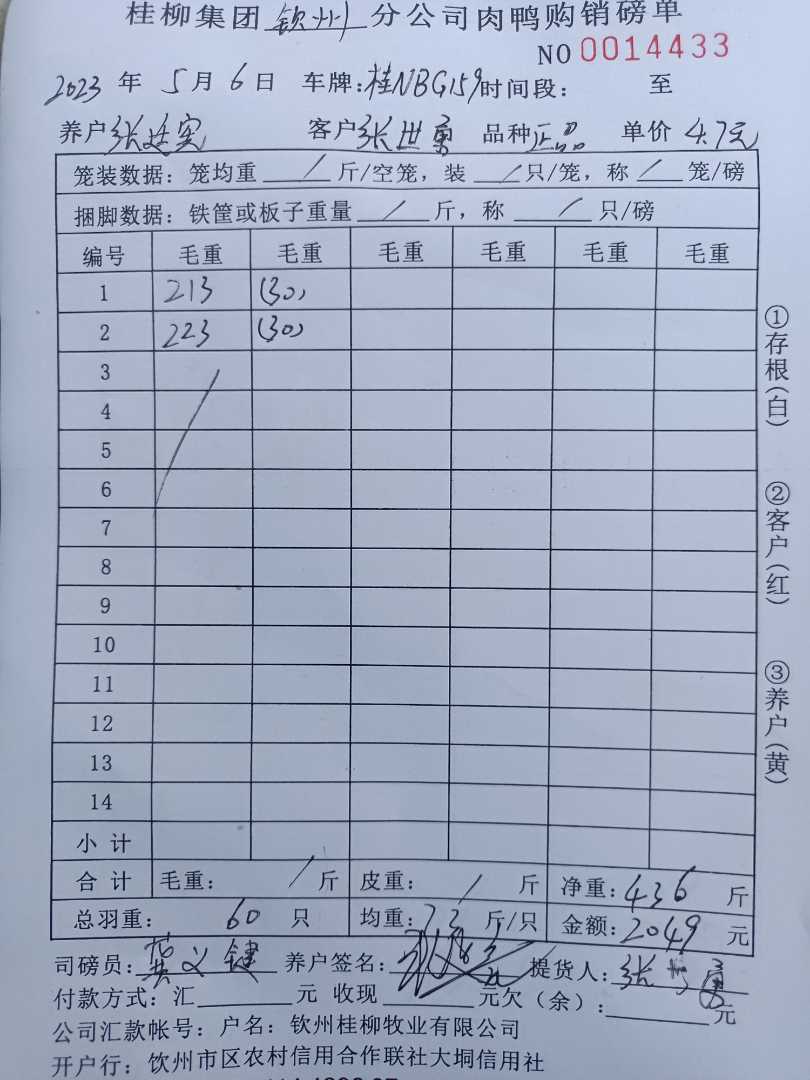 桂柳集团 钦州 分公司肉鸭购销磅单
NO 0014433
2023 年 5 月 6 日 车牌:桂NBG159 时间段: 至
养户 张廷宪 客户 张世勇 品种 正品 单价 4.7元
笼装数据: 笼均重 / 斤/空笼, 装 / 只/笼, 称 / 笼/磅
捆脚数据: 铁筐或板子重量 / 斤, 称 / 只/磅
编号 毛重 毛重 毛重 毛重 毛重 毛重
1 213 (30)
2 223 (30)
3
4
5
6
7
8
9
10
11
12
13
14
小 计
合 计 毛重: / 斤 皮重: / 斤 净重: 436 斤
总羽重: 60 只 均重: 7.3 斤/只 金额: 2049 元
司磅员: 黄义键 养户签名: 提货人: 张世勇
付款方式: 汇 元 收现 元欠(余): 元
公司汇款帐号: 户名: 钦州桂柳牧业有限公司
开户行: 钦州市区农村信用合作联社大垌信用社
①存根(白)
②客户(红)
③养户(黄)